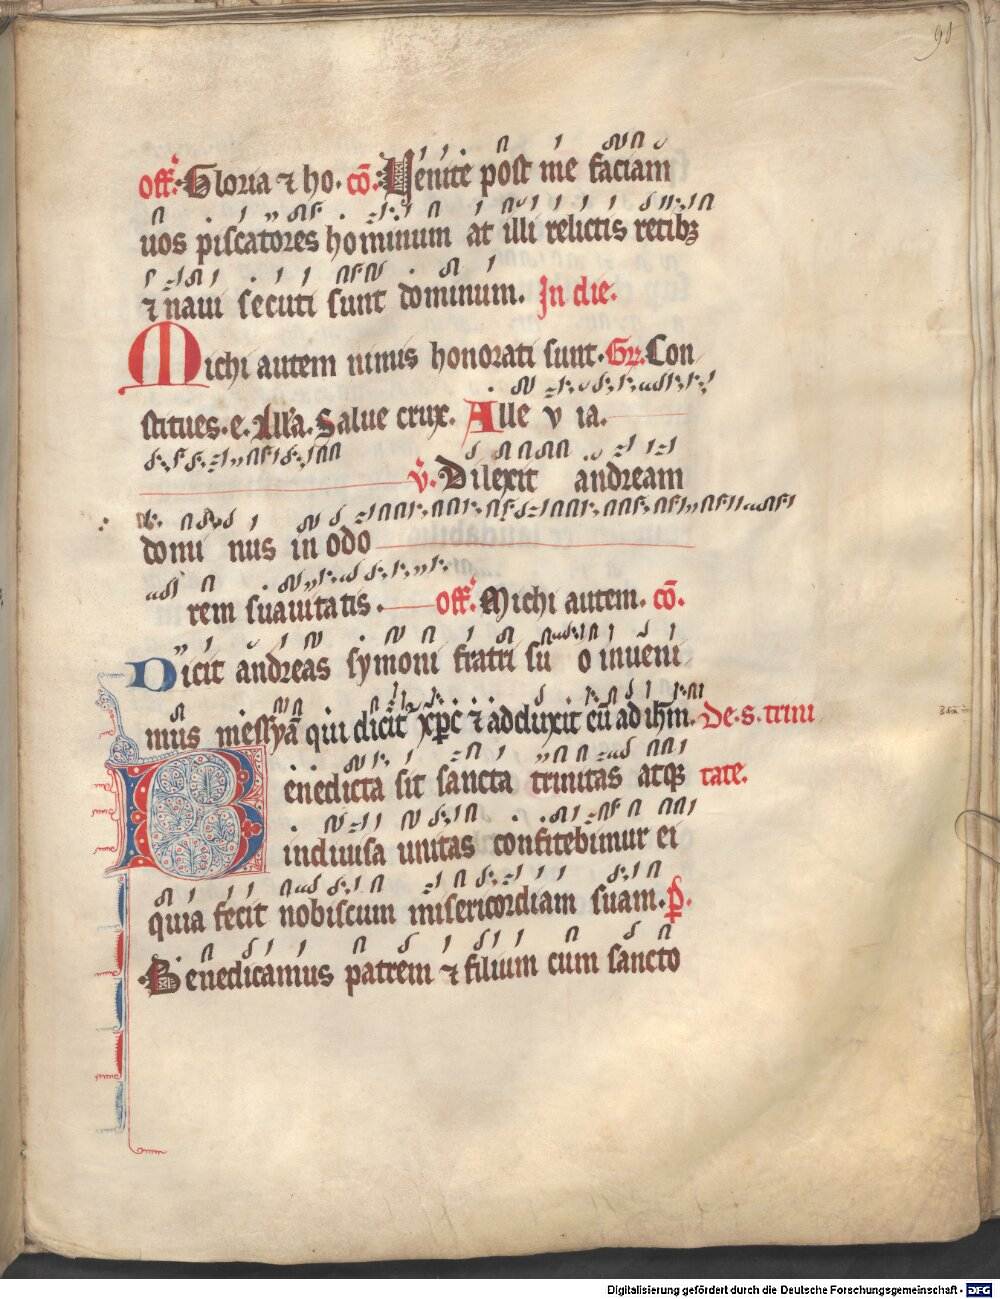 91
Off. Gloria ⁊ ho. cō. Venite post me faciam
uos piscatores hominum at illi relictis retibꝫ
⁊ naui secuti sunt dominum. In die.
Michi autem nimis honorati sunt. Gr. Con
stitues. e. All'a. Salue crux. Alle v ia.
v̄. Dilexit andream
domi nus in odo
rem suauitatis. off. Michi autem. cō.
Dicit andreas symoni fratri su o inueni
mus messyā qui dicit xp̄c ⁊ adduxit eū ad ih̄m. De. s. trini
Benedicta sit sancta trinitas atqꝫ tate.
indiuisa unitas confitebimur ei
quia fecit nobiscum misericordiam suam. p̄.
Benedicamus patrem ⁊ filium cum sancto
Digitalisierung gefördert durch die Deutsche Forschungsgemeinschaft - DFG